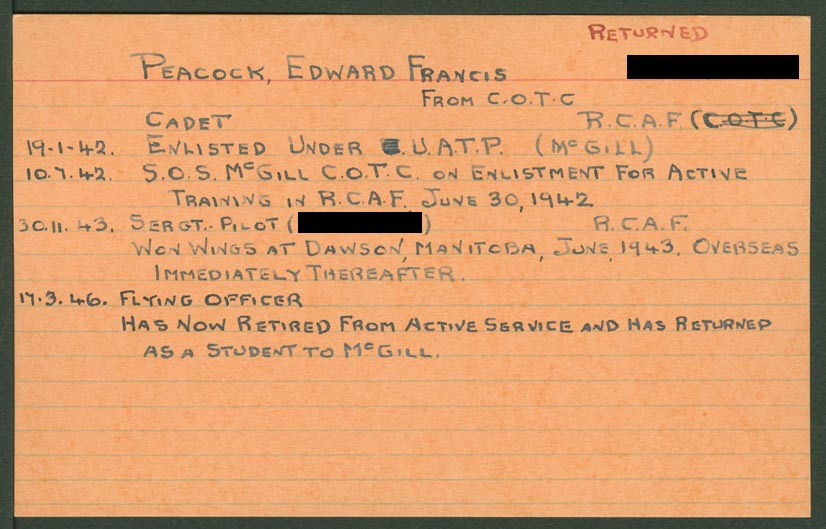 RETURNED
PEACOCK, EDWARD FRANCIS
FROM C.O.T.C
CADET R.C.A.F. (C.O.T.C)
19-1-42. ENLISTED UNDER U.A.T.P. (McGILL)
10.7.42. S.O.S. McGILL C.O.T.C. ON ENLISTMENT FOR ACTIVE
TRAINING IN R.C.A.F. JUNE 30, 1942
30.11.43. SERGT.-PILOT ( ) R.C.A.F.
WON WINGS AT DAWSON, MANITOBA, JUNE, 1943. OVERSEAS
IMMEDIATELY THEREAFTER.
17.3.46. FLYING OFFICER
HAS NOW RETIRED FROM ACTIVE SERVICE AND HAS RETURNED
AS A STUDENT TO McGILL.